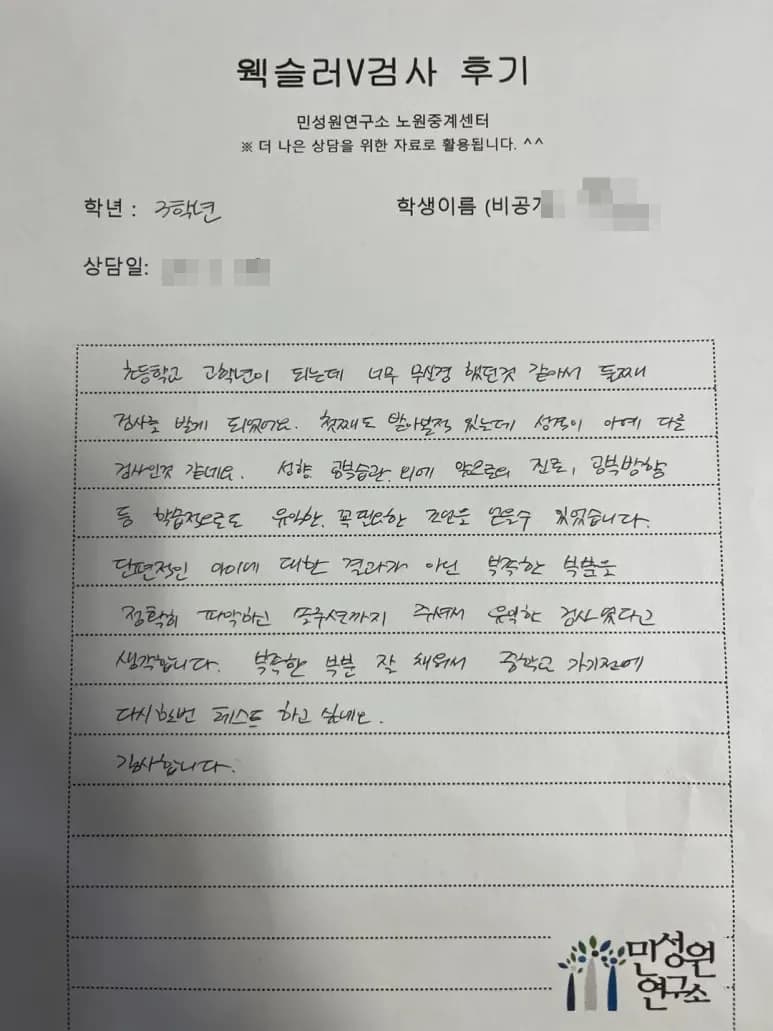 웩슬러V검사 후기
민성원연구소 노원중계센터
※ 더 나은 상담을 위한 자료로 활용됩니다. ^^
학년 : 3학년
학생이름 (비공개
상담일:
초등학교 고학년이 되는데 너무 무신경 했던것 같아서 둘째
검사를 받게 되었어요. 첫째도 받아본적 있는데 성격이 아예 다른
검사인것 같네요. 성향, 공부습관, 외에 앞으로의 진로, 공부방향
등 학습적으로도 유익한, 꼭 필요한 조언을 얻을수 있었습니다.
단편적인 아이에 대한 결과가 아닌 부족한 부분을
정확히 파악하신 솔루션까지 주셔서 유익한 검사였다고
생각합니다. 부족한 부분 잘 채워서 중학교 가기전에
다시한번 테스트 하고 싶네요.
감사합니다.
민성원
연구소